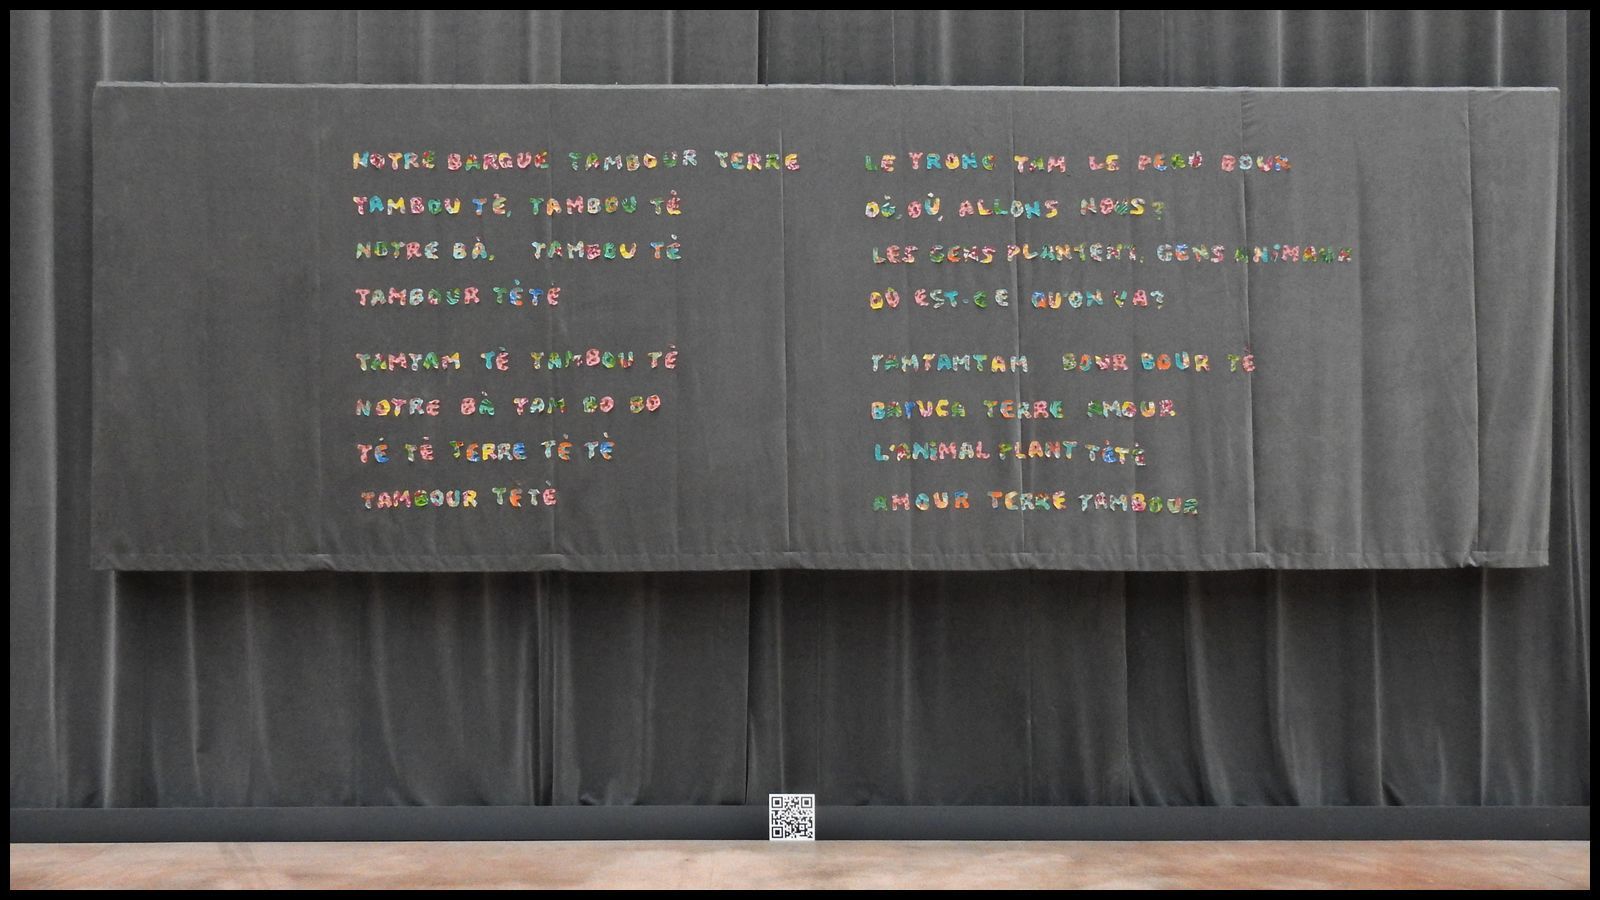 NOTRE BARQUE TAMBOUR TERRE
TAMBOU TÈ, TAMBOU TÈ
NOTRE BÀ, TAMBOU TÈ
TAMBOUR TÈTÈ
TAMTAM TÈ TAMBOU TÈ
NOTRE BÀ TAM BO BO
TÈ TÈ TERRE TÈ TÈ
TAMBOUR TÈTÈ
LE TRONC TAM LE PERD BOUR
OÙ, OÙ, ALLONS NOUS?
LES GENS PLANTENT, GENS ANIMAUX
OÙ EST-CE QU'ON VA?
TAMTAMTAM BOUR BOUR TÈ
BATUCA TERRE AMOUR
L'ANIMAL PLANT TÈTÈ
AMOUR TERRE TAMBOUR